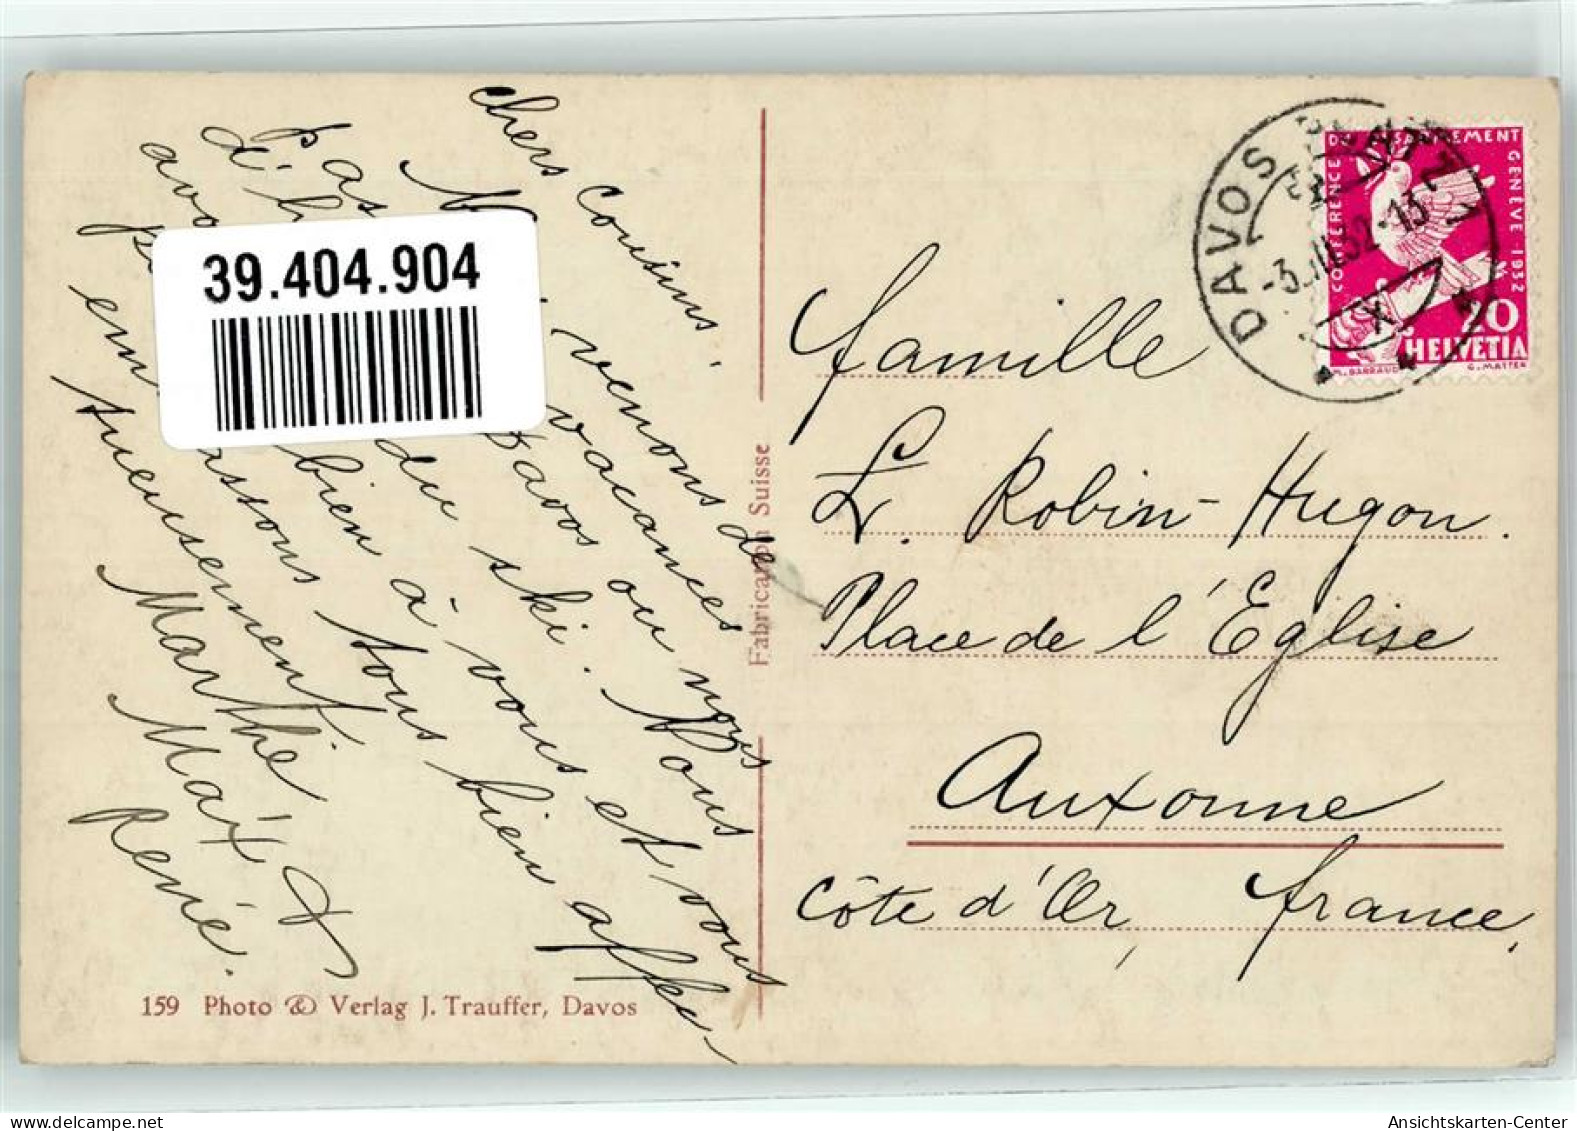 chers cousins,
Nous venons de
vacances
d'h Davos ou nous
avons du ski. Nous
bien à vous et vous
embrassons tous bien affec-
tueusement.
Marthe
Max &
René.
39.404.904
159 Photo & Verlag J. Trauffer, Davos
Fabrication Suisse
DAVOS PLATZ
-3.IV.32.-13
X
CONFERENCE DU DESARMEMENT GENEVE 1932
20
HELVETIA
M. BARRAUD G. MATTER
famille
L. Robin-Hugon.
Place de l'Eglise
Auxonne
Côte d'Or, france,
delcampe.net
Ansichtskarten-Center